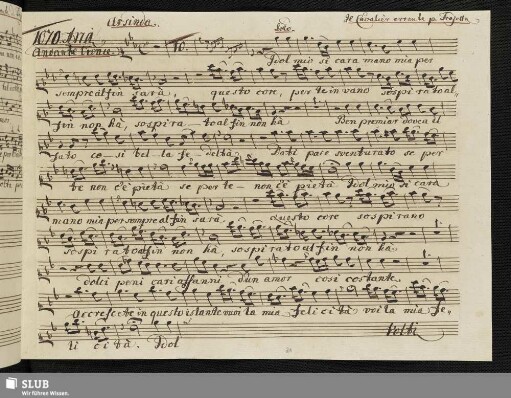 Arsinda. Il Cavalier errante p. Trajetta
No. 10. Aria Solo.
Andante 10.
Idol mio si cara mano mia per
sempre alfin sarà, questo core, per te in vano sospirato al,
fin non hà, sospirato alfin non hà Ben premiar dovea il
fato co- si bel- la fe, deltà, Dati pace sventurato se per
te non c'è pietà se per te- non c'è pietà Idol mio si cara
mano mia per sempre alfin sarà. questo core sospirano
sospirato alfin non hà, sospirato alfin non hà.
dolci peni cari affanni d'un amor cosi costante.
accrescete in questo istante moi la mia felicità voi la mia fe,
li cità. Idol Volti
SLUB
Wir führen Wissen.